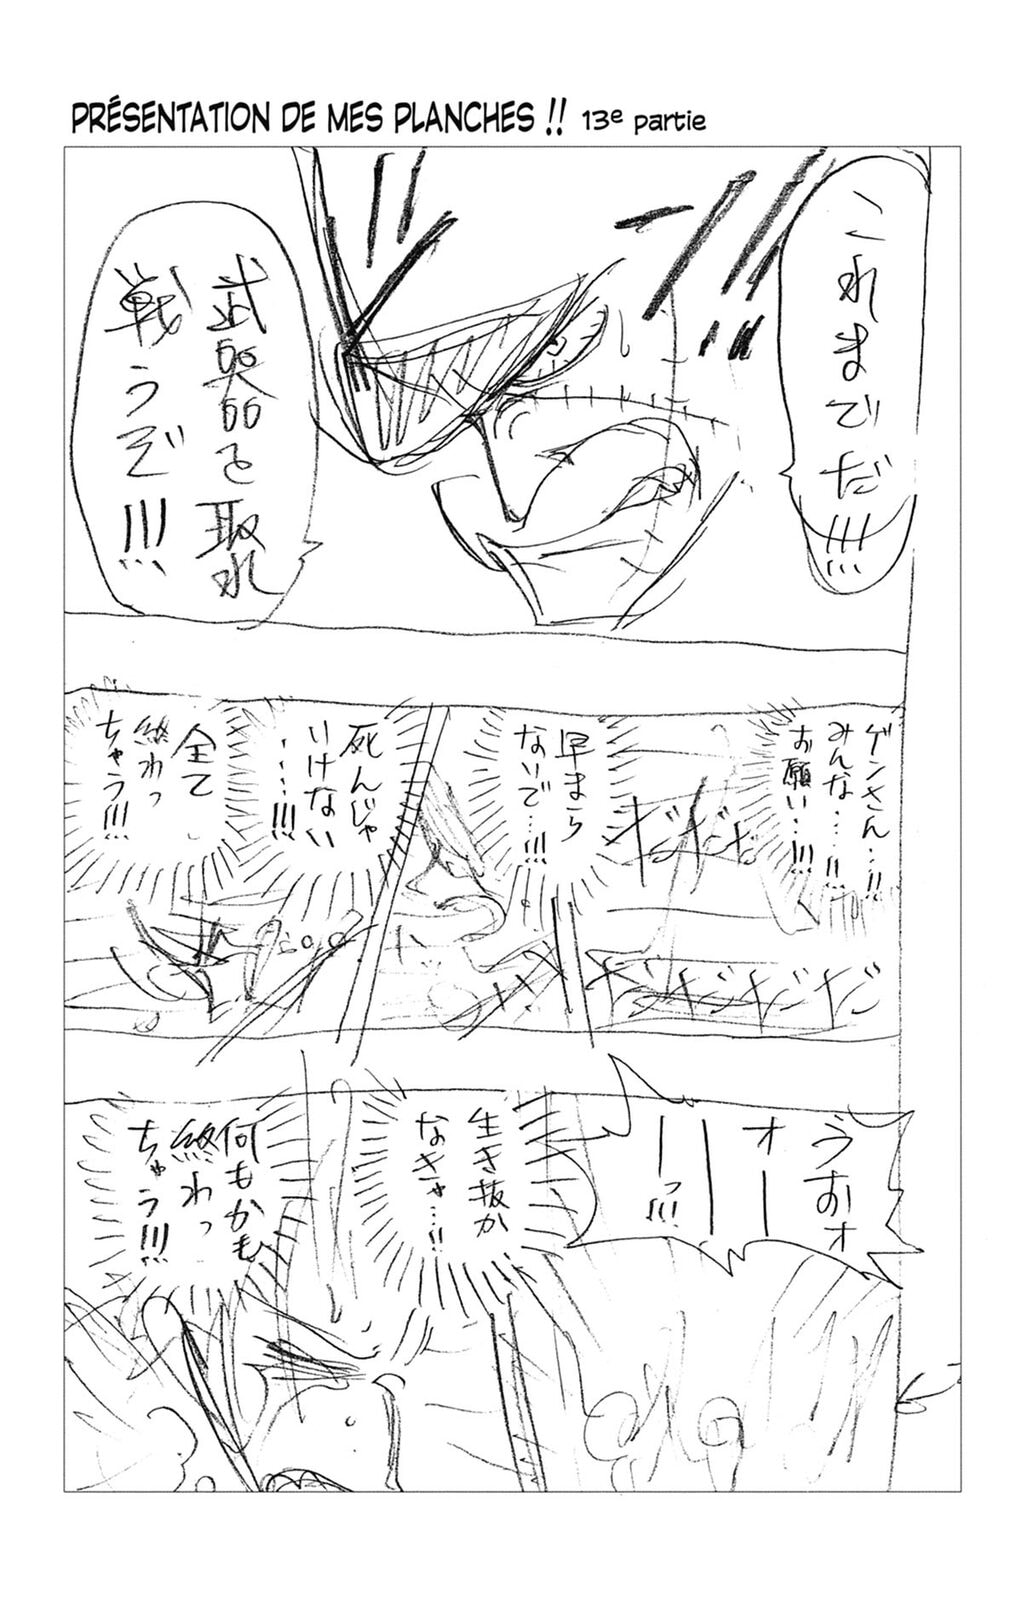 PRÉSENTATION DE MES PLANCHES !! 13e partie
これまでだ!!!
武器を取れ
戦うぞ!!!
ゲンさん‥!!
みんな‥‥!!
お願い‥‥!!!
ダダダ
ダダダダダ
早まら
ないで‥‥!!!
死んじゃ
いけない
‥‥‥!!!
全て
終わっ
ちゃう!!!
うおォ
オー
ー
ーっ!!!
生き抜か
なきゃ‥‥!!
何もかも
終わっ
ちゃう!!!
6